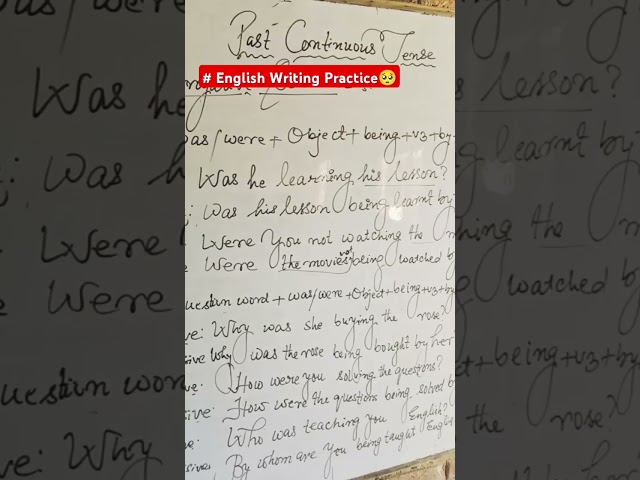 Past Continuous Tense
# English Writing Practice🥺
was/were + Object + being + v3 + by +
Was he learning his lesson?
Was his lesson being learnt by
Were you not watching the
Were the movies not being watched by
Question word + was/were + Object + being + v3 + by
ve: Why was she buying the rose?
sive Why was the rose being bought by her
ve: How were you solving the questions?
sive: How were the questions being solved b
ve: Who was teaching you English?
ssive: By whom are you being taught English